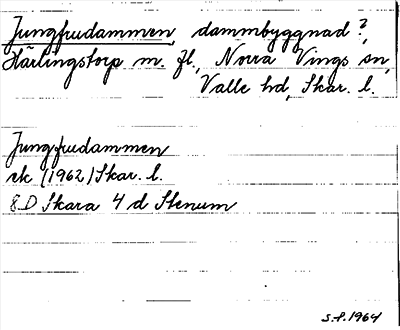 Jungfrudammen, dammbyggnad?,
Härlingstorp m. fl., Norra Vings sn,
Valle hd, Skar. l.
Jungfrudammen
ek (1962) Skar. l.
8D Skara 4 d Stenum
S.P. 1964